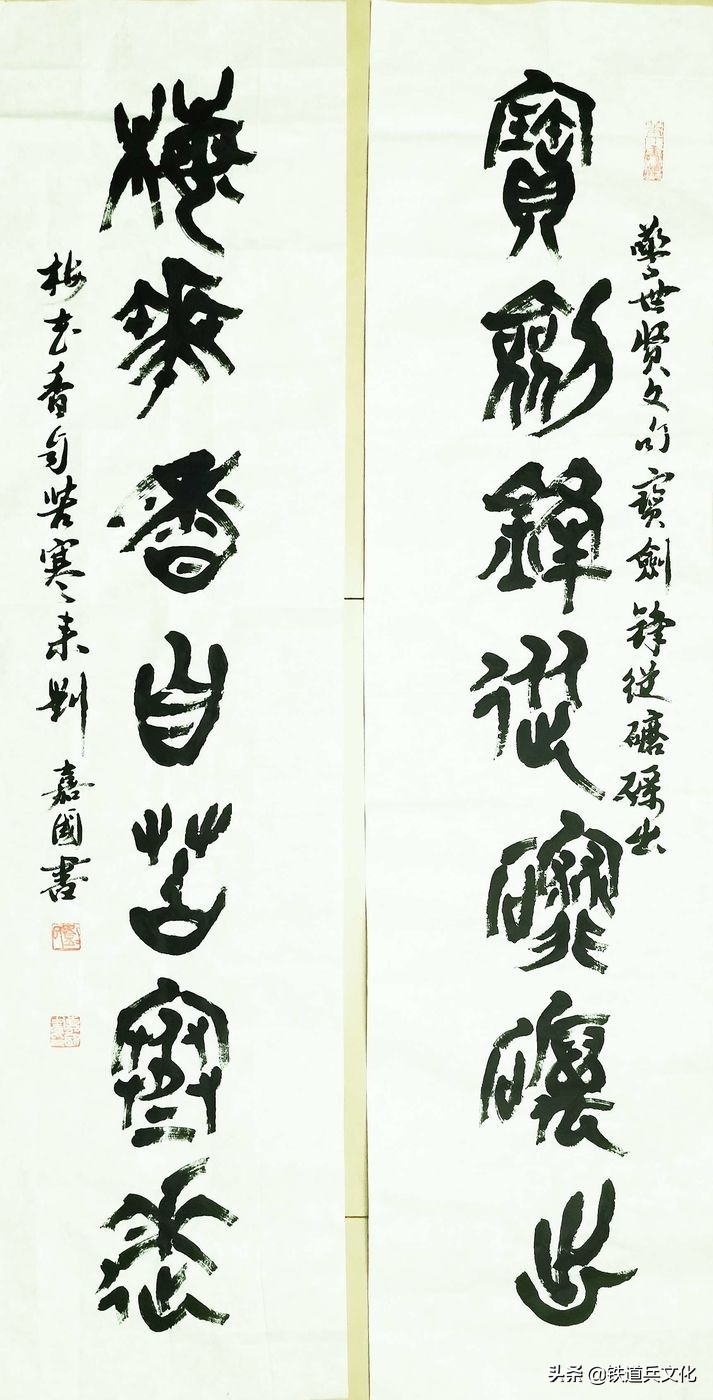 警世贤文句寶劍鋒從磨礪出
寶劍鋒從磨礪出
梅華香自苦寒來
梅花香自苦寒来 嘉國書
头条 @铁道兵文化